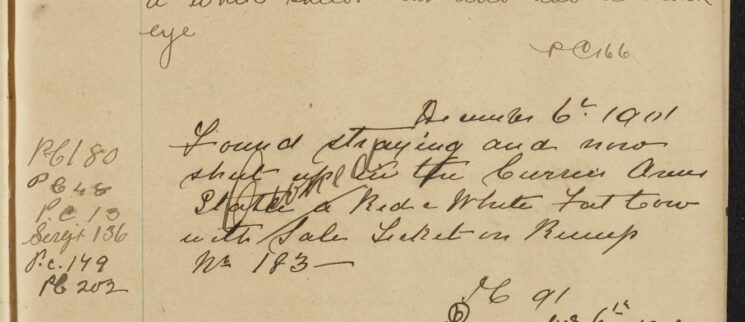 eye
PC 166
December 6th 1901
Found straying and now
shut up in the Currier Arms
Stable a Red & White Fat Cow
with Sale Ticket on Rump
No 183 —
Owned
PC 180
PC 48
P.C 13
Sergt 136
P.c. 149
PC 202
PC 91